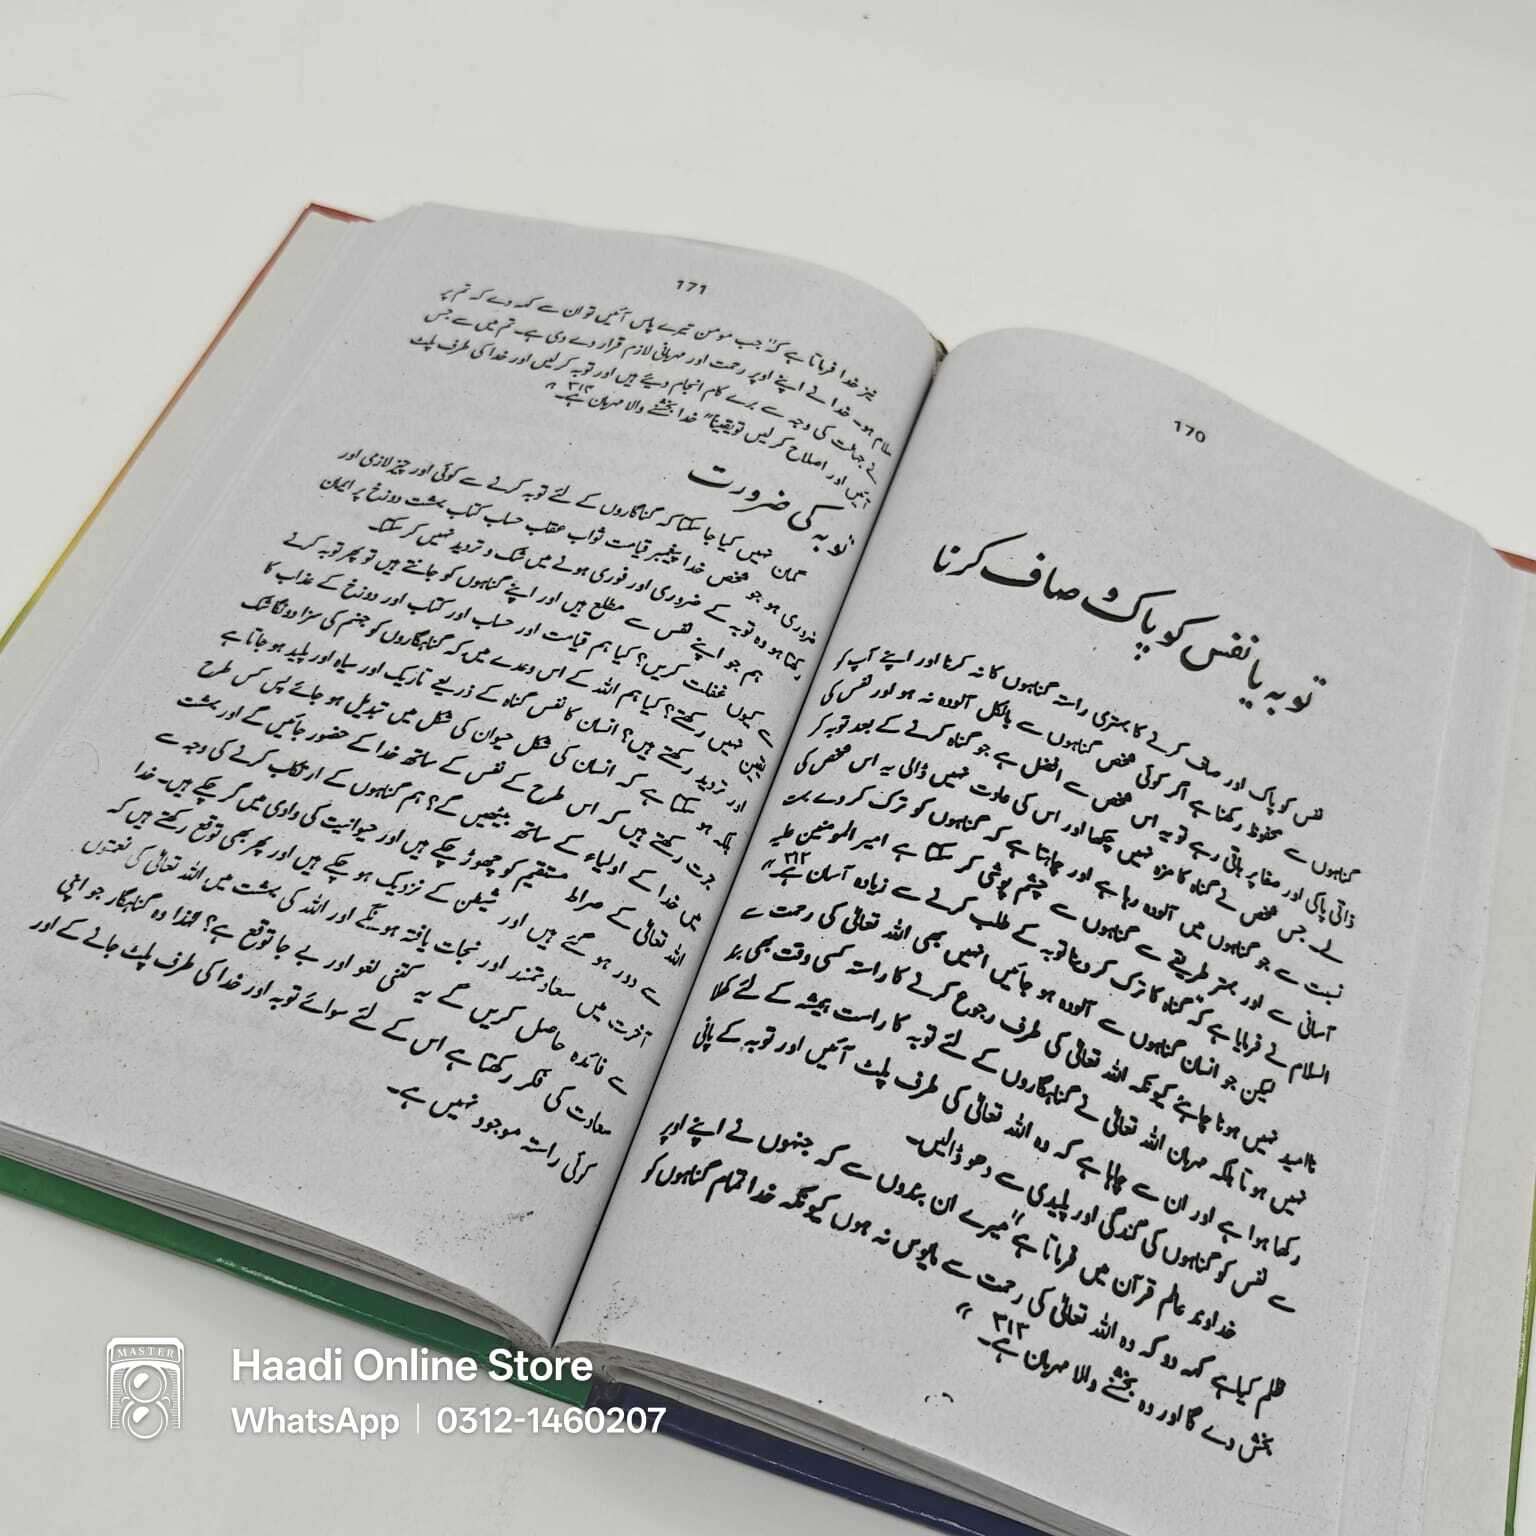 170
توبہ یا نفس کو پاک و صاف کرنا
نفس کو پاک اور صاف کرنے کا بہتری راستہ گناہوں کا نہ کرنا اور اپنے آپ کو
گناہوں سے محفوظ رکھنا ہے اگر کوئی شخص گناہوں سے بالکل آلودہ نہ ہو اور نفس کی
ذاتی پاکی اور صفا پر باقی رہے تو یہ اس شخص سے افضل ہے جو گناہ کرنے کے بعد توبہ کر
لے۔ جس شخص نے گناہ کا مزہ نہیں چکھا اور اس کی عادت نہیں ڈالی یہ اس شخص کی
نسبت سے جو گناہوں میں آلودہ رہا ہے اور چاہتا ہے کہ گناہوں کو ترک کر دے بہت
آسانی سے اور بہتر طریقے سے گناہوں سے چشم پوشی کر سکتا ہے امیر المومنین علیہ
السلام نے فرمایا ہے کہ "گناہ کا ترک کر دینا توبہ کے طلب کرنے سے زیادہ آسان ہے۔۳۱۲"
لیکن جو انسان گناہوں سے آلودہ ہو جائیں انہیں بھی اللہ تعالی کی رحمت سے
ناامید نہیں ہونا چاہئے کیونکہ اللہ تعالی کی طرف رجوع کرنے کا راستہ کسی وقت بھی بند
نہیں ہوتا بلکہ مہربان اللہ تعالی نے گناہگاروں کے لئے توبہ کا راستہ ہمیشہ کے لئے کھلا
رکھا ہوا ہے اور ان سے چاہا ہے کہ وہ اللہ تعالی کی طرف پلٹ آئیں اور توبہ کے پانی
سے نفس کو گناہوں کی گندگی اور پلیدی سے دھو ڈالیں۔
خداوند عالم قرآن میں فرماتا ہے "میرے ان بندوں سے کہ جنہوں نے اپنے اوپر
ظلم کیا ہے کہہ دو کہ وہ اللہ تعالی کی رحمت سے مایوس نہ ہوں کیونکہ خدا تمام گناہوں کو
بخش دے گا اور وہ بخشنے والا مہربان ہے۔۳۱۳"
171
نیز خدا فرماتا ہے کہ "جب مومن تیرے پاس آئیں تو ان سے کہہ دے کہ تم پر
سلام ہو۔ خدا نے اپنے اوپر رحمت اور مہربانی لازم قرار دے دی ہے۔ تم میں سے جس
نے جہالت کی وجہ سے برے کام انجام دیئے ہیں اور توبہ کر لیں اور خدا کی طرف پلٹ
آئیں اور اصلاح کر لیں تو یقیناً" خدا بخشنے والا مہربان ہے۔۳۱۴"
توبہ کی ضرورت
گمان نہیں کیا جا سکتا کہ گناگاروں کے لئے توبہ کرنے سے کوئی اور چیز لازی اور
ضروری ہو جو شخص خدا پیغمبر قیامت ثواب عقاب حساب کتاب بہشت دوزخ پر ایمان
رکھتا ہو وہ توبہ کے ضروری اور فوری ہونے میں شک و تردید نہیں کر سکتا۔
ہم جو اپنے نفس سے مطلع ہیں اور اپنے گناہوں کو جانتے ہیں تو پھر توبہ کرنے
سے کیوں غفلت کریں؟ کیا ہم قیامت اور حساب اور کتاب اور دوزخ کے عذاب کا
یقین نہیں رکھتے؟ کیا ہم اللہ کے اس وعدے میں کہ گناہگاروں کو جہنم کی سزا دونگا شک
اور تردید رکھتے ہیں؟ انسان کا نفس گناہ کے ذریعے تاریک اور سیاہ اور پلید ہو جاتا ہے
بلکہ ہو سکتا ہے کہ انسان کی شکل حیوان کی شکل میں تبدیل ہو جائے پس کس طرح
جرت رکھتے ہیں کہ اس طرح کے نفس کے ساتھ خدا کے حضور جائیں گے اور بہشت
میں خدا کے اولیاء کے ساتھ بیٹھیں گے؟ ہم گناہوں کے ارتکاب کرنے کی وجہ سے
اللہ تعالی کے صراط مستقیم کو چھوڑ چکے ہیں اور حیوانیت کی وادی میں گر چکے ہیں۔ خدا
سے دور ہو گئے ہیں اور شیطن کے نزدیک ہو چکے ہیں اور پھر بھی توقع رکھتے ہیں کہ
آخرت میں سعادتمند اور نجات یافتہ ہونگے اور اللہ کی بہشت میں اللہ تعالی کی نعمتوں
سے فائدہ حاصل کریں گے یہ کتنی لغو اور بے جا توقع ہے؟ لھذا وہ گناہگار جو اپنی
سعادت کی فکر رکھتا ہے اس کے لئے سوائے توبہ اور خدا کی طرف پلٹ جانے کے اور
کوئی راستہ موجود نہیں ہے۔
MASTER
Haadi Online Store
WhatsApp | 0312-1460207